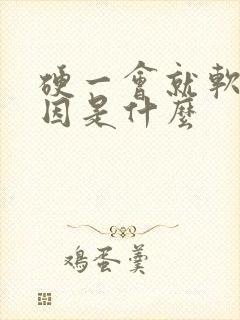 硬一會就軟
因是什麼
鸡蛋羹